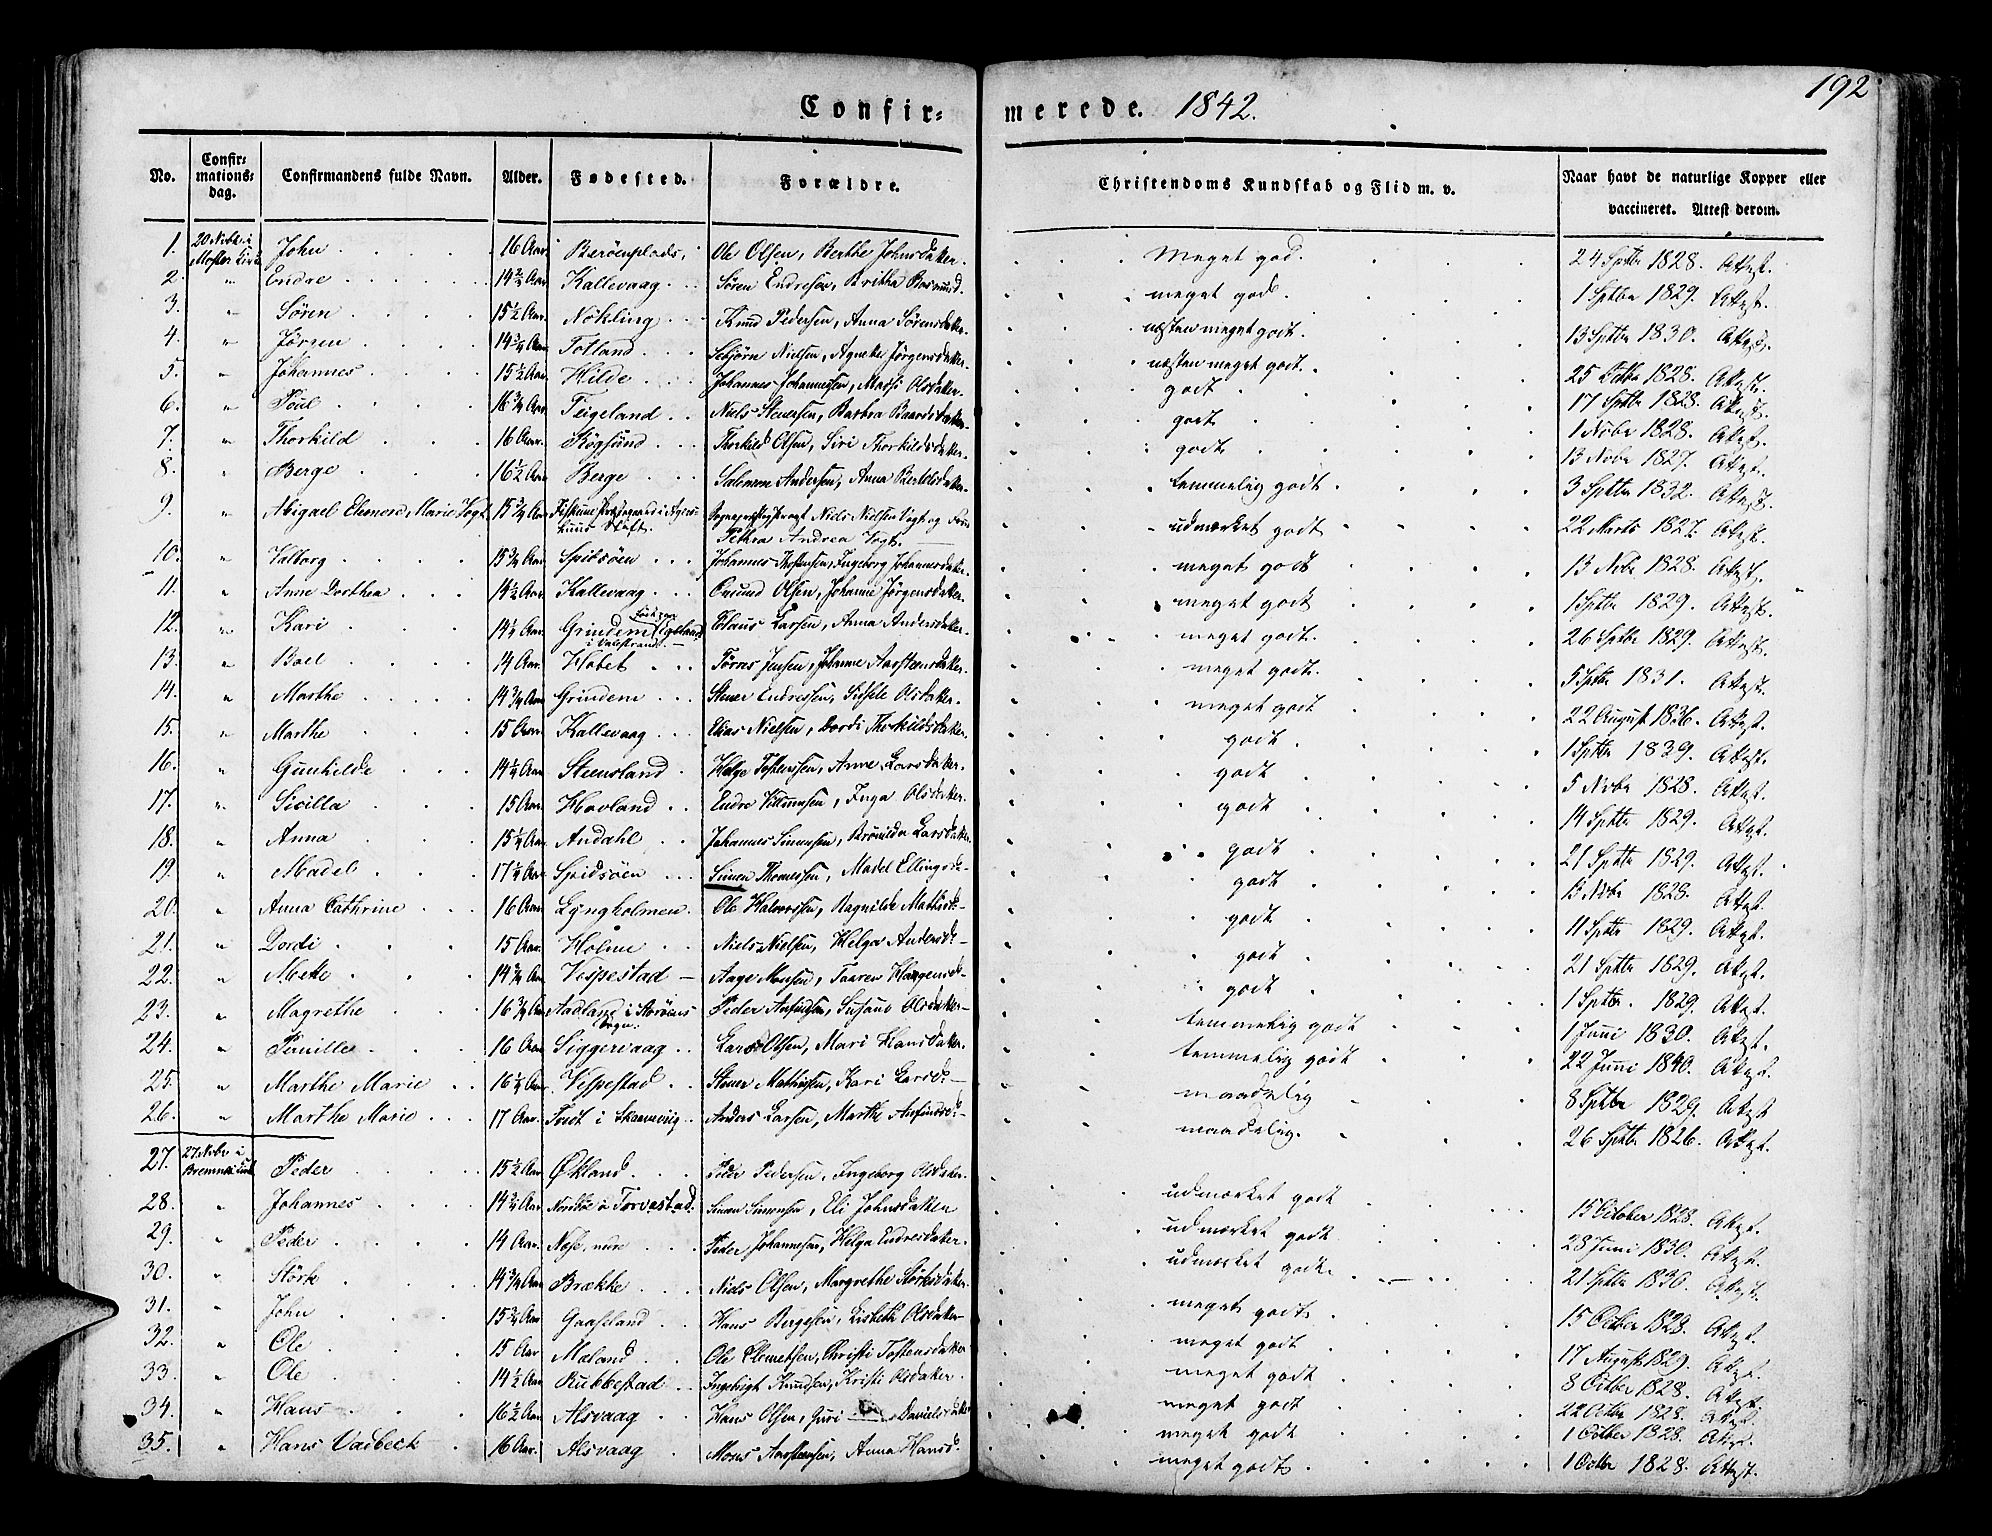 192
Confir=merede. 1842.
No. Confir=mations=dag. Confirmandens fulde Navn. Alder. Fødested. Forældre. Christendoms Kundskab og Flid m. v. Naar havt de naturlige Kopper eller vaccineret. Attest derom.
1. 20 Nvbr i Moster Kirke John 16 Aar Berøenplads, Ole Olsen, Berthe Johnsdatter. Meget god. 24 Sptbr 1828. Attest.
2. " Endre 14 2/4 Aar Kallevaag Søren Endresen, Britha Rasmusd. meget godt. 1 Sptbr 1829. Attest.
3. " Søren 15 1/2 Aar. Nökling Knud Pedersen, Anna Sørensdatter. næsten meget godt. 13 Sptbr 1830. Attest.
4. " Jørgen 14 3/4 Aar Totland Sebjörn Nielsen, Agnethe Jørgensdatter. næsten meget godt.
5. " Johannes 15 1/2 Aar Hilde Johannes Johannessen, Madsi Olsdatter. godt 25 Octbr 1828. Attest.
6. " Poul 18 3/4 Aar Teigeland Niels Steensen, Barbra Baardsdatter. godt 17 Sptbr 1828. Attest.
7. " Thorkild 16 Aar. Kögsund Thorkild Olsen, Siri Thorkildsdatter. godt 1 Novbr 1828. Attest.
8. " Berge 16 1/2 Aar Berge Salomon Andersen, Anna Bertelsdatter. temmelig godt 13 Novbr 1827. Attest.
9. " Abigael Elenore Marie Vogt 15 3/4 Aar Niels Nielsen Vogt og Petra Andrea Vogt. udmærket godt 3 Sptbr 1832. Attest.
10. " Valborg 15 3/4 Aar Spidsöen Johannes Thostensen, Ingeborg Johannesdatter. meget godt 22 Marts 1827. Attest.
11. " Anne Dorthea 14 1/2 Aar Kallevaag Omund Olsen, Johanne Jörgensdatter. meget godt 13 Nvbr 1828. Attest.
12. " Kari 14 1/4 Aar Grindem i Valestrand Claus Larsen, Anna Andersdatter. meget godt. 1 Sptbr 1829. Attest.
13. " Boel 14 Aar. Hobet Törres Jensen, Johanne Aarstensdatter. meget godt 26 Sptbr 1829. Attest.
14. " Marthe 14 3/4 Aar Grindem Stener Endressen, Sidsele Olsdatter. meget godt 5 Sptbr 1831. Attest.
15. " Marthe 15 Aar. Kallevaag Elias Nielsen, Dordi Thorkildsdatter. godt 22 August 1836. Attest.
16. " Gunhilde 14 1/4 Aar Steensland Helge Tostensen, Anne Larsdatter. godt 1 Sptbr 1839. Attest.
17. " Sicilla 15 Aar. Hovland Endre Villumsen, Inga Olsdatter. godt 5 Novbr 1828. Attest.
18. " Anna 15 1/4 Aar Andahl Johannes Simensen, Brönilda Larsdatter. godt 14 Sptbr 1829. Attest.
19. " Madel 17 1/2 Aar Spidsöen Simen Thomessen, Madel Ellingsd. godt 21 Sptbr 1829. Attest.
20. " Anna Cathrine 16 Aar Lyngholmen. Ole Halvorsen, Ragnilde Mathisd. godt 13 Novbr 1828. Attest.
21. " Dordi 15 Aar Holme Niels Nielsen, Helga Andersd. godt 11 Sptbr 1829. Attest.
22. " Mette 14 3/4 Aar Vespestad Aage Monsen, Taaren Haagensd. godt 21 Sptbr 1829. Attest.
23. " Magrethe 16 3/4 Aar Aadland i Storöens Sogn. Peder Anfindsen, Susane Olsdatter temmelig godt 1 Sptbr. 1829. Attest.
24. " Pernille 16 Aar Siggervaag Lars Olsen, Mari Hansdatter. temmelig godt 1 Juni 1830. Attest.
25. " Marthe Marie 16 1/4 Aar Vespestad Stener Mathissen, Kari Larsd. maadelig 22 Juni 1840. Attest.
26. " Marthe Marie 17 Aar. Tvedt i Skaanevig Anders Larsen, Marthe Anfindsd. maadelig. 8 Sptbr 1829. Attest
26 Sptbr 1826. Attest.
27. 27 Nvbr i Bremnes Kirke Peder 15 1/2 Aar Økland Peder Pedersen, Ingeborg Olsdatter. udmærket godt 15 October 1828. Attest.
28. " Johannes 14 2/4 Aar Nordöe i Torvestad. Simen Simensen, Eli Johnsdatter udmærket godt 28 Juni 1830. Attest.
29. " Peder 14 Aar. Nese, Peder Johannesen, Helga Endresdatter. udmærket godt. 21 Sptbr 1830. Attest.
30. " Störk 14 3/4 Aar Brække Niels Olsen, Margrethe Störksdatter. meget godt 15 October 1828. Attest.
31. " John 15 3/4 Aar Gaaseland Hans Bergesen, Lisbeth Olsdatter meget godt 17 August 1829. Attest.
32. " Ole 15 Aar Moland Ole Clemetsen, Christi Tostensdatter meget godt 8 Octbr 1828. Attest.
33. " Ole 14 1/2 Aar Rubbestad Ingebrigt Knudsen, Kristi Olsdatter. meget godt 22 Octbr 1828. Attest.
34. " Hans 16 1/2 Aar Alsvaag Hans Olsen, Guri Danielsdatter meget godt 1 Octbr 1828. Attest.
35. " Hans Vadbeck 16 Aar. Alsvaag Mons Aarstensen, Anna Hansd. meget godt. 1 Octbr 1828. Attest.